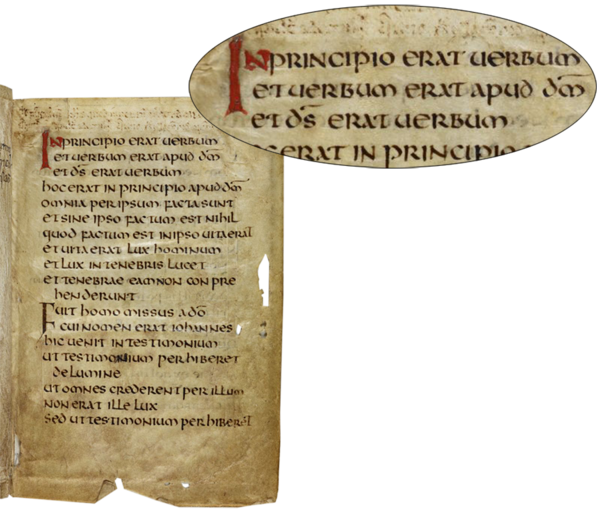 IN principio erat uerbum
et uerbum erat apud dm̄
et ds̄ erat uerbum
erat in principio
IN principio erat uerbum
et uerbum erat apud dm̄
et ds̄ erat uerbum
hoc erat in principio apud dm̄
omnia per ipsum facta sunt
et sine ipso factum est nihil
quod factum est in ipso uita erat
et uita erat lux hominum
et lux in tenebris lucet
et tenebrae eam non con pre
henderunt
Fuit homo missus a dō
cui nomen erat iohannes
hic uenit in testimonium
ut testimonium perhiberet
de lumine
ut omnes crederent per illum
non erat ille lux
sed ut testimonium perhiberet